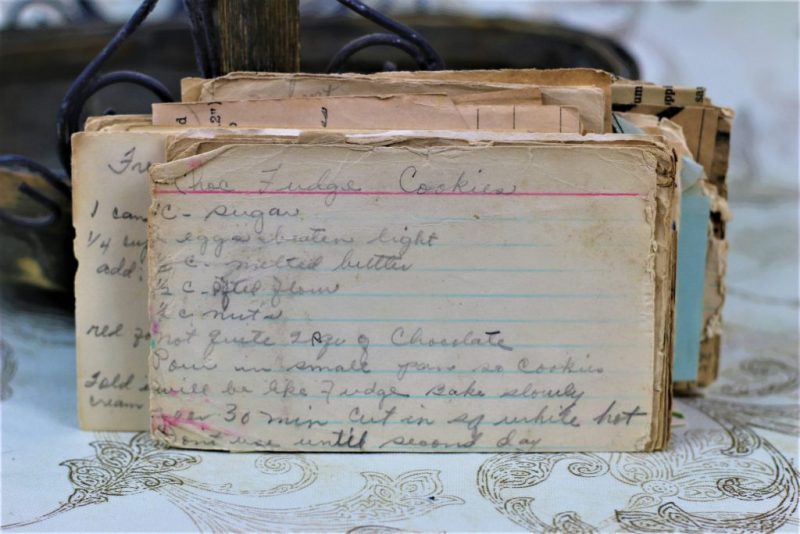 Choc Fudge Cookies
C - sugar
eggs beaten light
C - melted butter
½ C - flour
½ C nuts
not quite 2 sqr of Chocolate
Pour in small pan so Cookies
will be like Fudge Bake slowly
over 30 min cut in sq while hot
Dont use until second day
Fre
1 can
¼ cup
add
red
Fold
cream
d
2"
um